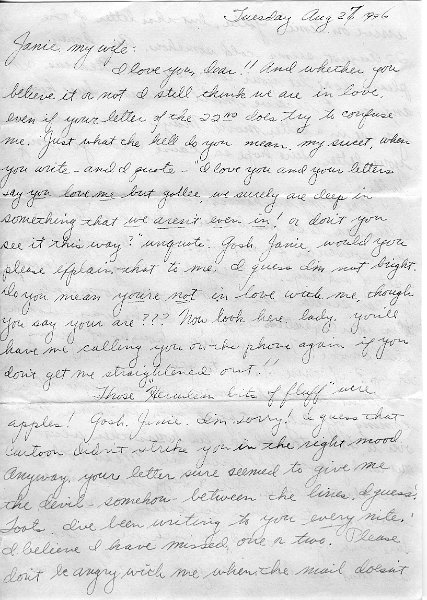 Tuesday Aug 27 1946
Janie, my wife:
I love you, dear!! And whether you
believe it or not I still think we are in love,
even if your letter of the 22nd does try to confuse
me. "Just what the hell do you mean, my sweet, when
you write - and I quote - "I love you and your letters
say you love me but gollee, we surely are deep in
something that we aren't even in! or don't you
see it this way?" unquote. Gosh, Janie, would you
please explain that to me. I guess I'm not bright.
Do you mean you're not in love with me, though
you say your are??? Now look here, lady, you'll
have me calling you on the phone again if you
don't get me straightened out!
Those "Herculean bits of fluff" were
apples! Gosh, Janie, I'm sorry! I guess that
cartoon didn't strike you in the right mood
Anyway, your letter sure seemed to give me
the devil - somehow between the lines, I guess.
I've been writing to you every nite!
I believe I have missed one or two. Please
don't be angry with me when the mail doesn't